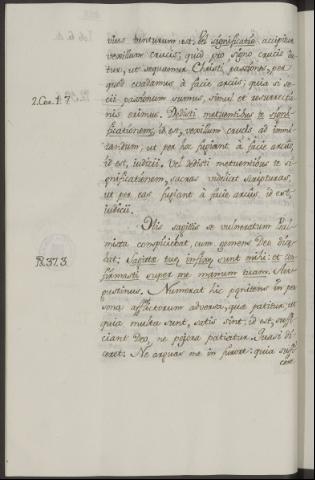 vius venturum est. Vel significatio accipitur
vexillum crucis, quod pro signo crucis da-
tur, ut sequamur Christi passiones, per
quod evadamus à facie arcus, quia si so-
cii passionum sumus, simul et resurrectio-
nis erimus. Dedisti metuentibus te signi-
ficationem, id est, vexillum crucis ad immi-
tandum, ut per hoc fugiant à facie arcus,
id est, iudicii. Vel dedisti metuentibus te si-
gnificationem, sacras videlicet scripturas,
ut per eas fugiant à facie arcus, id est,
iudicii.
2. Cor. 1. 7.
His sagittis se vulneratum Psal-
mista conspiciebat, cum gemens Deo dice-
bat: Sagittæ tuæ infixæ sunt mihi: et con-
firmasti super me manum tuam. Au-
gustinus. Numerat hic pœnitens in per-
sona afflictorum adversa, quæ patitur, et
quia multa sunt, satis sint, id est, suffi-
ciant Deo, ne pejora patiatur. Quasi di-
ceret: Ne arguas me in furore: quia suffi-
Ps. 37. 3.